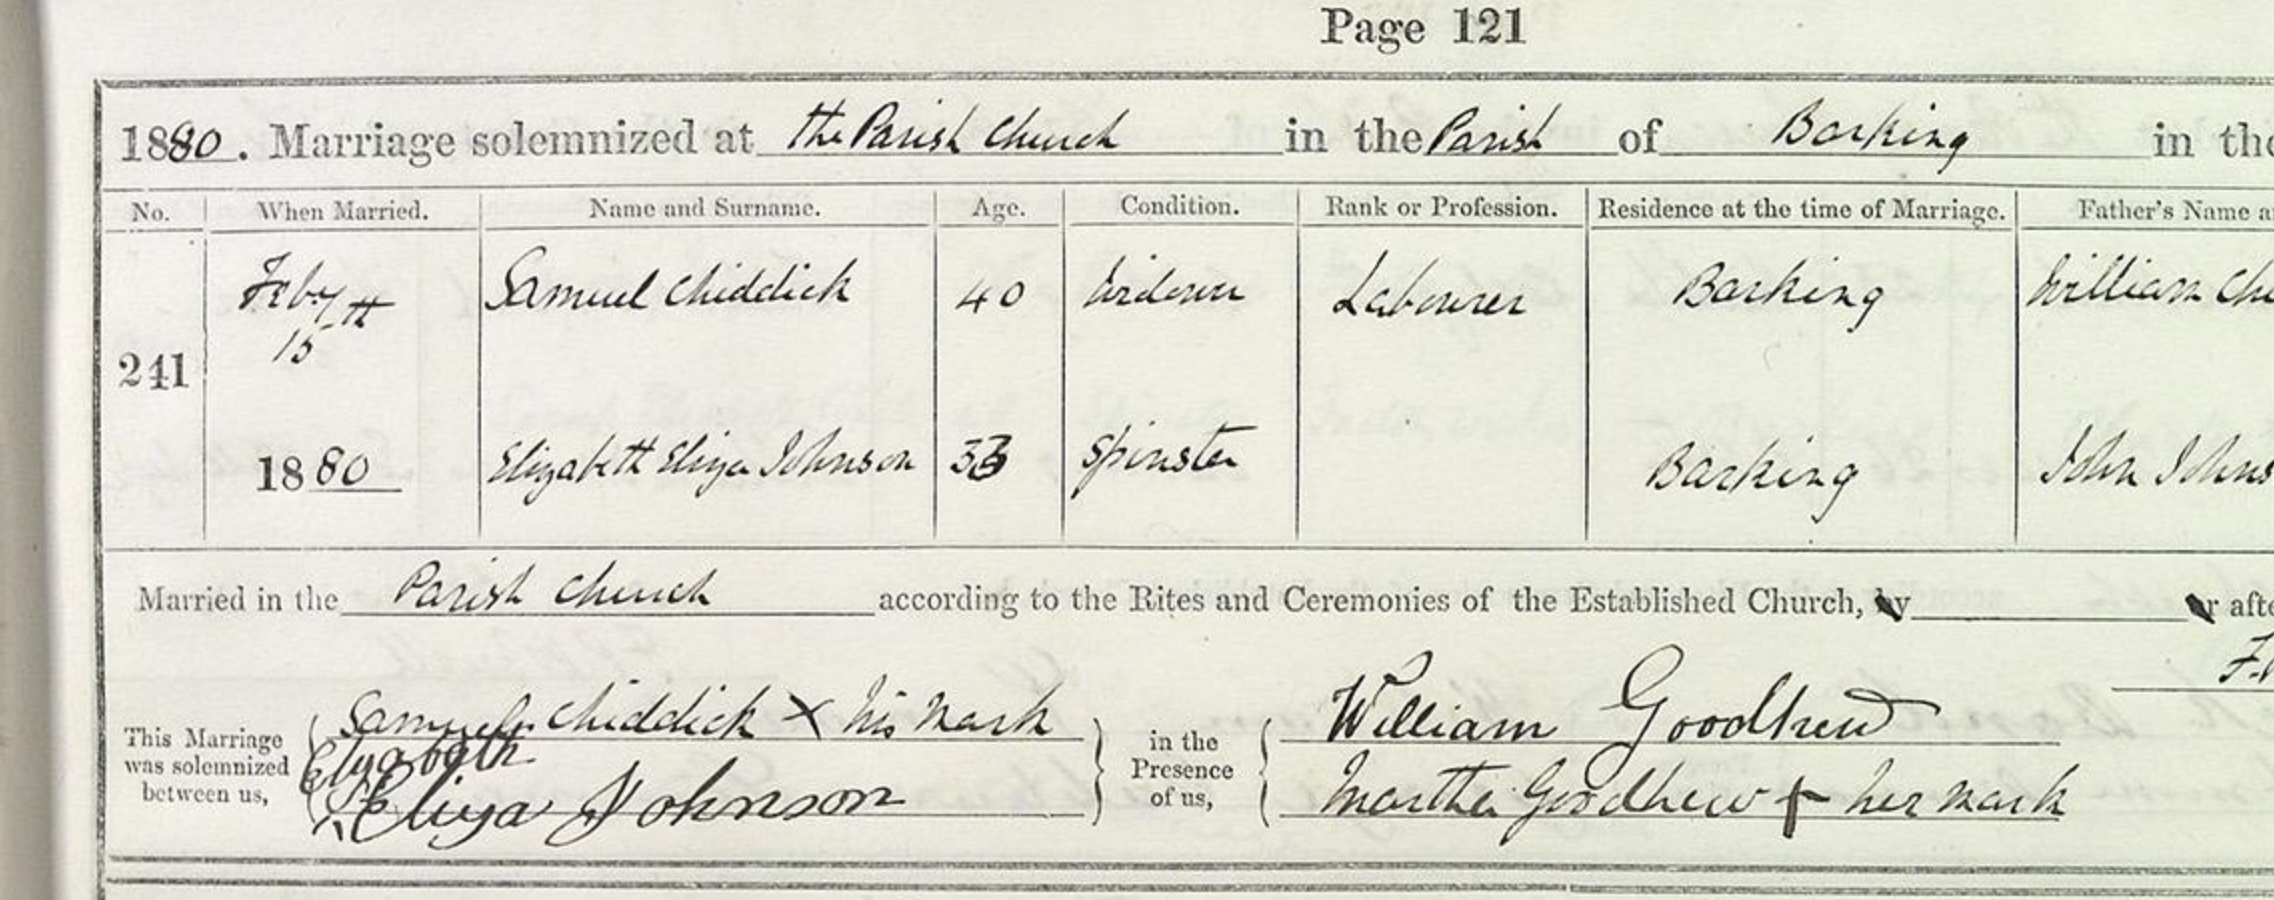 Page 121
1880. Marriage solemnized at the Parish Church in the Parish of Barking in the
No. When Married. Name and Surname. Age. Condition. Rank or Profession. Residence at the time of Marriage. Father's Name a
Feby Samuel Chiddick 40 Widower Labourer Barking William Chi
15th
241
1880 Elizabeth Eliza Johnson 33 Spinster Barking John Johns
Married in the Parish Church according to the Rites and Ceremonies of the Established Church, by or afte
This Marriage was solemnized between us,
Samuel Chiddick X his mark
Elizabeth
Eliza Johnson
in the Presence of us,
William Goodhew
Martha Goodhew + her mark